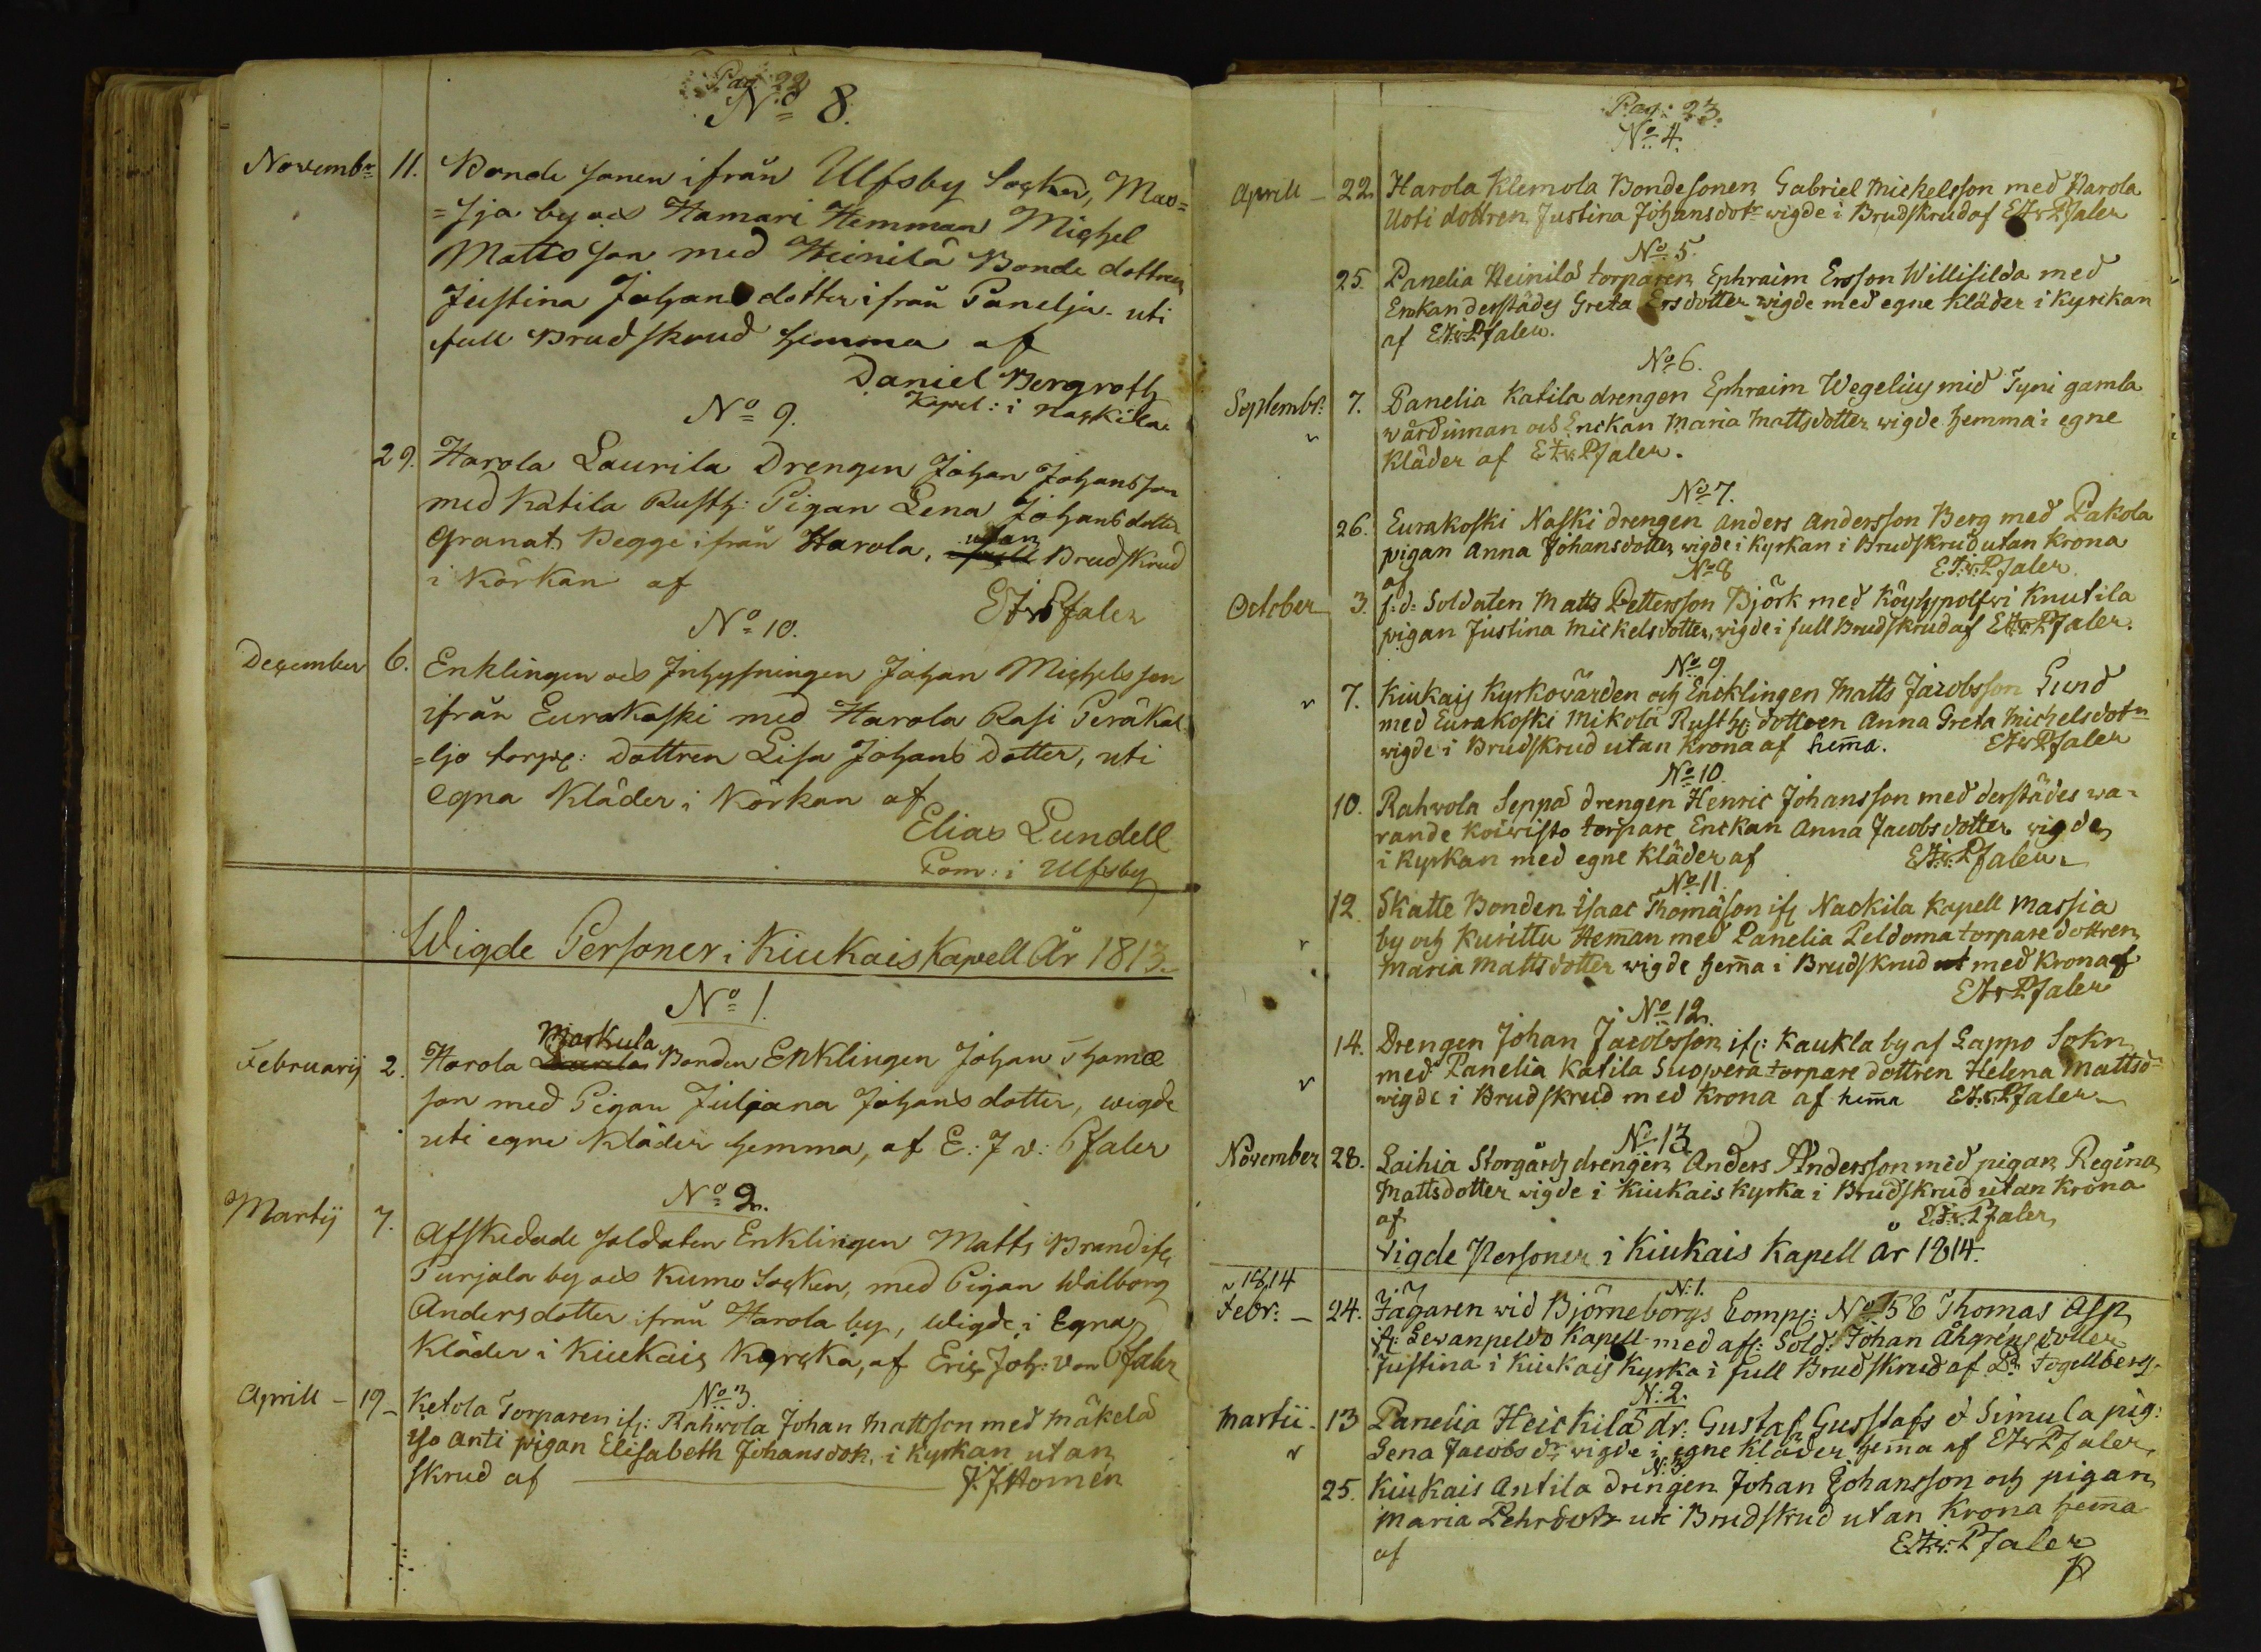 Pag: 22
No 8.
Novembr 11. Bonde sonen ifrån Ulfsby Socken, Mas=
=sja by och Hamari Hemman Michel
Matts son med Heinilä Bonde dottren
Justina Johans dotter ifrån Panelja uti
full Brudskrud hemma af
Daniel Bergroth
Kapel: i Nackila
No 9.
29. Harola Laurila Drengen Johan Johansson
med Katila Rusth: Pigan Lena Johans dotter
Granat. Begge ifrån Harola, utan Brudskrud
i Körkan af
EJvPfaler
No 10.
December 6. Enklingen och Inhysningen Johan Michelsson
ifrån Eurakoski med Harola Rasi Peräkal
=ljo torp: dottren Lisa Johans dotter, uti
Egna Kläder i Körkan af
Elias Lundell
Com: i Ulfsby
Wigde Personer i Kiukais Kapell År 1813.
No 1.
Markula
Februarij 2. Harola Bonden Enklingen Johan Thomæ
son med Pigan Juliana Johans dotter, wigde
uti egne Kläder hemma, af E: J v: Pfaler
No 2.
Martij 7. Afskedade soldaten Enklingen Matts Brand ifr
Purjala by och Kumo Socken, med Pigan Walborg
Anders dotter ifrån Harola by, wigde i Egna
Kläder i Kiukais Kyrcka, af Eric Joh: von Pfaler
No 3.
Aprill – 19 – Ketola Torparen ifr: Rahwola Johan Mattsson med Mäkelä
iso Anti pigan Elisabeth Johansdotr, i Kyrkan utan
skrud af J. J. Homén
Pag: 23.
No 4.
Aprill – 22. Harola Klemola Bondesonen Gabriel Mickelsson med Harola
Uoti dottren Justina Johansdotr wigde i Brudskrud af EJvPfaler
No 5.
25. Panelia Heinilä torparen Ephraim Ersson Willisilda med
Enkan derstädes Greta Ersdotter wigde med egne kläder i Kyrckan
af EJ:v:Pfaler.
No 6.
Septembr: 7. Panelia Katila drengen Ephraim Wegelius mid Tyni gamla
wärdinnan och Enckan Maria Mattsdotter wigde hemma i egne
Kläder af EJ:v:Pfaler.
No 7.
26. Eurakoski Naski drengen Anders Andersson Berg med Pakola
pigan Anna Johansdotter wigde i Kyrkan i Brudskrud utan Krona
af EJ:v:Pfaler
No 8
October 3. f:d: Soldaten Matts Pettersson Björk med Köyhypolfwi Knutila
pigan Justina Mickelsdotter, wigde i full Brudskrud af EJvPfaler.
No 9
7. Kiukais Kyrkowärden och Encklingen Matts Jacobsson Lund
med Eurakoski Mikola Rusth: dottren Anna Greta Michelsdotr
wigde i Brudskrud utan Krona af hem̄a. EJvPfaler
No 10.
10. Rahwola Seppä drengen Henric Johansson med derstädes wa-
rande Koiwisto torpare Enckan Anna Jacobsdotter wigde
i Kyrkan med egne Kläder af EJ:v:Pfaler.
No 11.
12. Skatte Bonden Isaac Thomäson ifr Nackila Kapell Massia
by och Kurittu Hem̄an med Panelia Peldoma torpare dottren
Maria Mattsdotter wigde hem̄a i Brudskrud med Krona af
EJvPfaler
No 12.
14. Drengen Johan Jacobsson ifr: Kaukla by af Lappo Sokn
med Panelia Katila Suopera torpare dottren Helena Mattsdr
wigde i Brudskrud med Krona af hem̄a EJ:v:Pfaler
No 13.
November 28. Laihia Storgårds drengen Anders Andersson med pigan Regina
Mattsdotter wigde i Kiukais Kyrka i Brudskrud utan Krona
af EJ:v:Pfaler
Vigde Personer i Kiukais Kapell År 1814.
1814 N:1.
Febr: – 24. Jägaren wid Björneborgs Comp: No 58 Thomas Asp
fr: Lewanpeldo Kapell med afs: Sold: Johan Åhgréns dotter
Justina i Kiukais Kyrka i full Brudskrud af Pr Fogellberg.
N:2.
Martii – 13 Panelia Heickilä dr: Gustaf Gustafs o Simula pig:
Lena Jacobs dr wigde i egne kläder hem̄a af EJvPfaler
N:3
25. Kiukais Antila drengen Johan Johansson och pigan
Maria Pehrdotr uti Brudskrud utan Krona hem̄a
af EJ:v:Pfaler